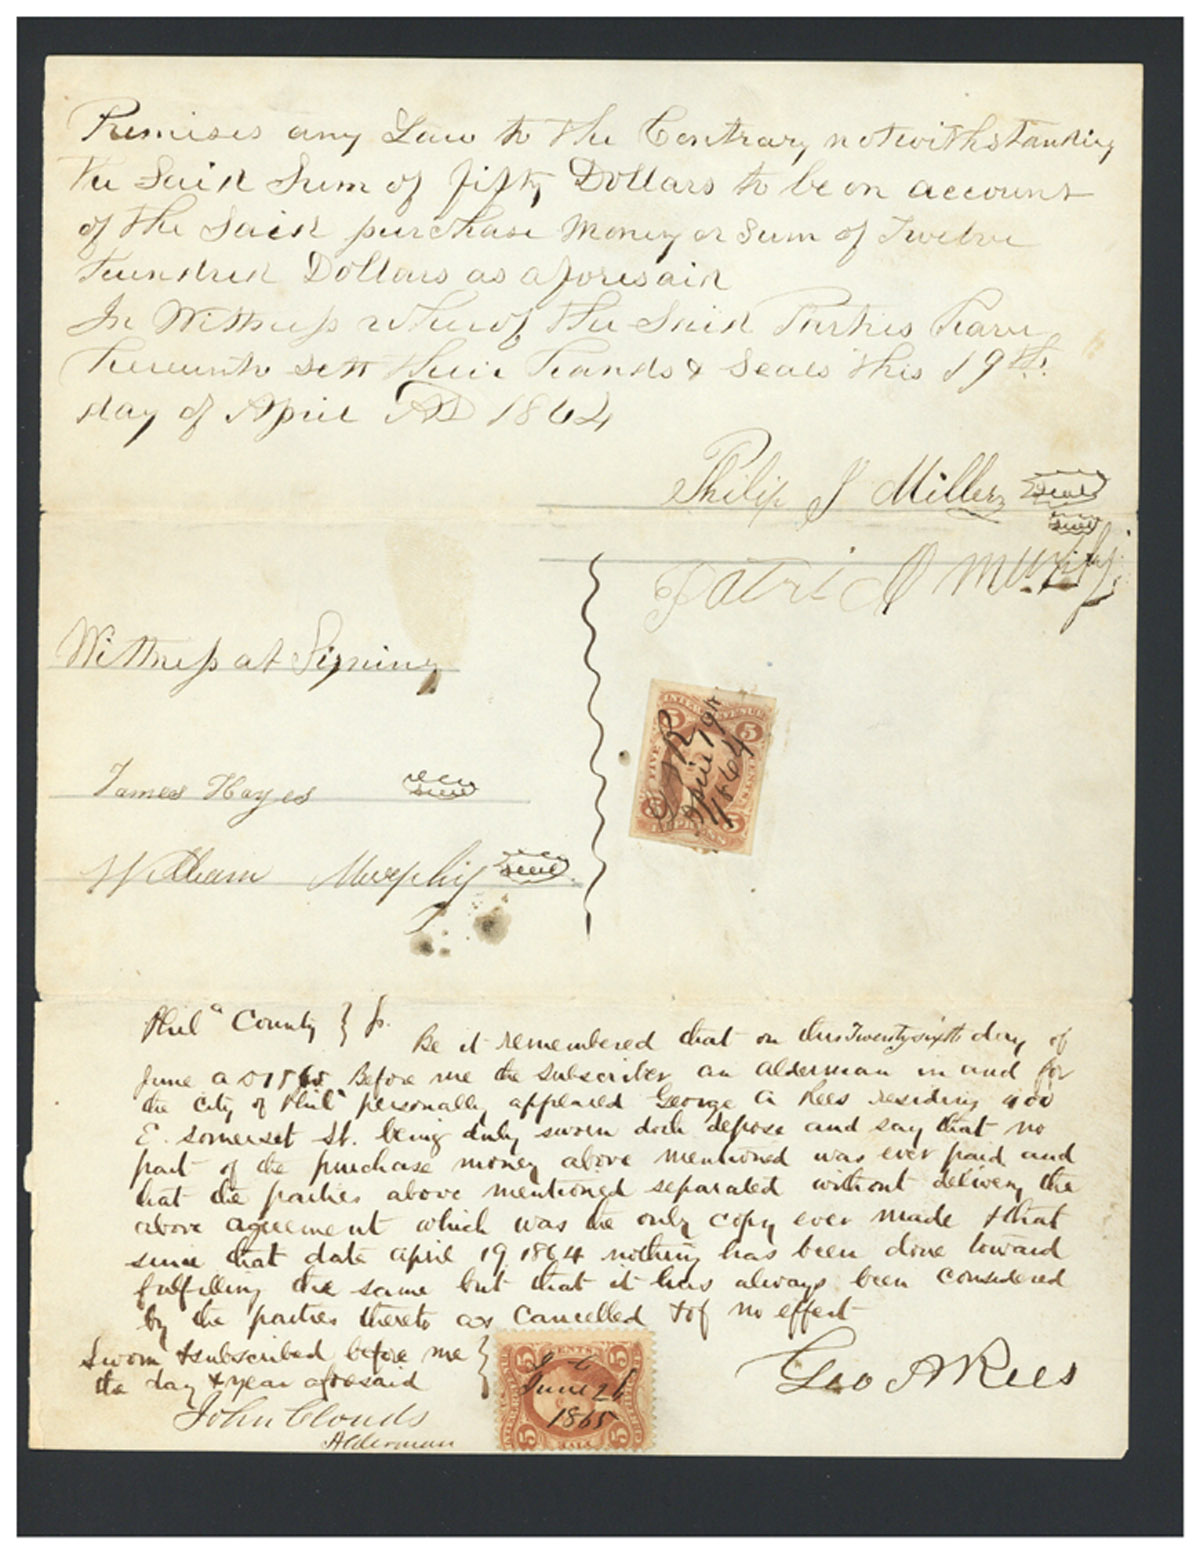 Premises any Law to the Contrary notwithstanding
the Said Sum of fifty Dollars to be on account
of the Said purchase Money or Sum of Twelve
hundred Dollars as aforesaid
In Witness whereof the Said Parties have
hereunto sett their hands & Seals this 19th
day of April AD 1864
Philip J Miller seal
seal
Patrick Murphy
Witness at Signing
James Hayes seal
William Murphy seal
INTER. REVENUE
5 5
FIVE CENTS
April 19th
1864
EXPRESS
Phila County } ss.
Be it remembered that on this Twenty sixth day of
June AD 1865 Before me the subscriber an alderman in and for
the city of Phila personally appeared George A Rees residing 400
E. Somerset St. being duly sworn doth depose and say that no
part of the purchase money above mentioned was ever paid and
that the parties above mentioned separated without delivery the
above agreement which was the only copy ever made & that
since that date april 19 1864 nothing has been done toward
fulfilling the same but that it has always been considered
by the parties thereto as cancelled & of no effect
Sworn & subscribed before me }
the day & year aforesaid
Geo A Rees
John Clouds
Alderman
CENTS
5 5
June 26
1865
5 5